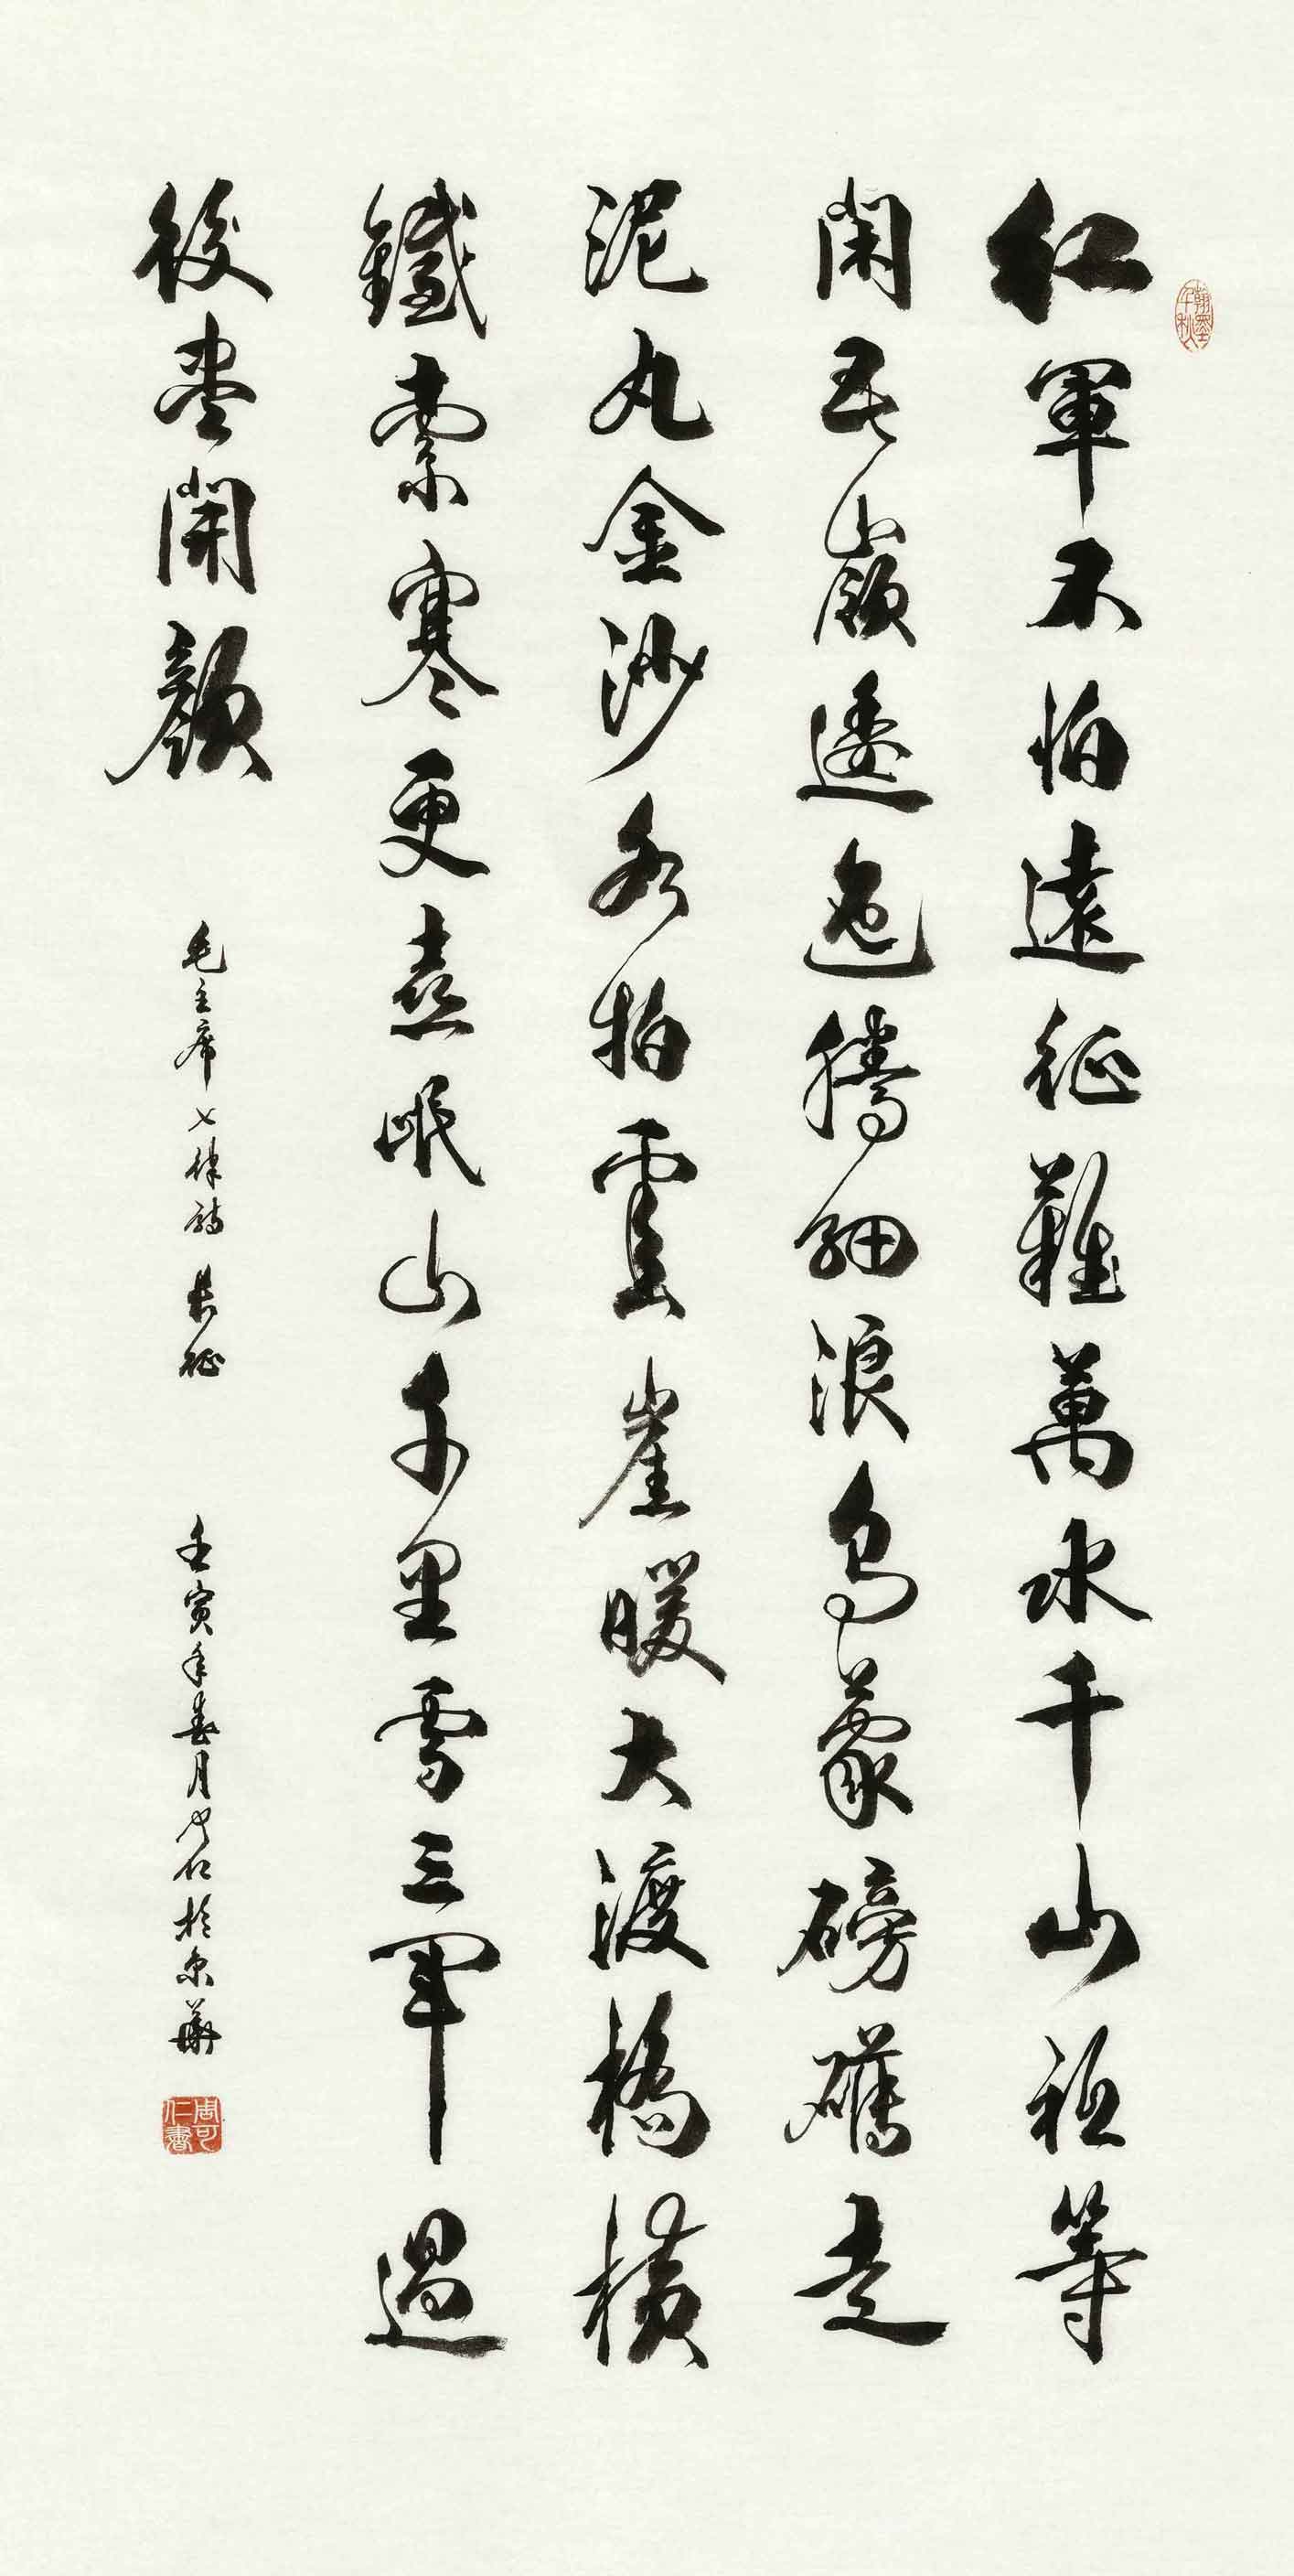 翰墨千秋
紅軍不怕遠征難萬水千山祇等
閑五嶺逶迤騰細浪烏蒙磅礴走
泥丸金沙水拍雲崖暖大渡橋橫
鐵索寒更喜岷山千里雪三軍過
後盡開顏
毛主席七律詩 長征 壬寅年春月可仁於京華
周可仁書